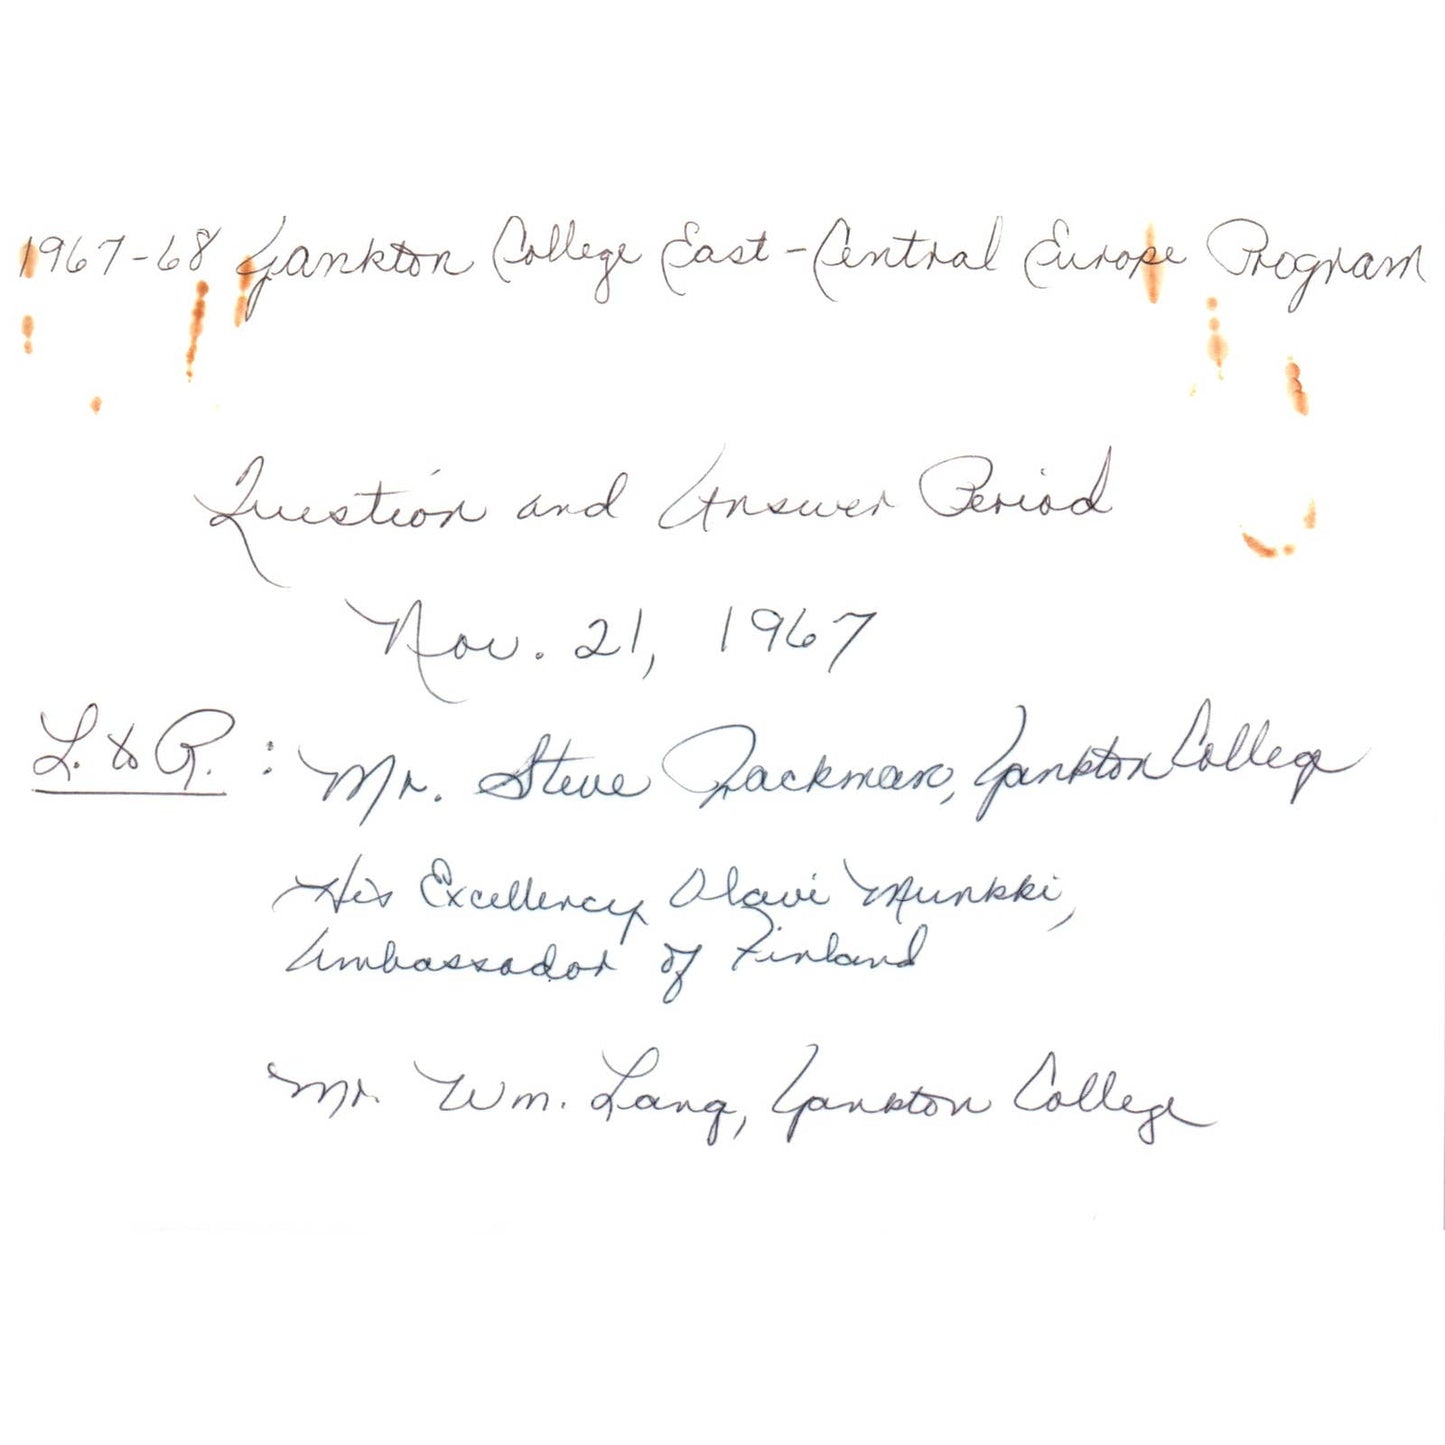 1967-68 Yankton College East-Central Europe Program
Question and Answer Period
Nov. 21, 1967
L. to R. : Mr. Steve Packman, Yankton College
His Excellency Olavi Munkki,
Ambassador of Finland
Mr. Wm. Lang, Yankton College